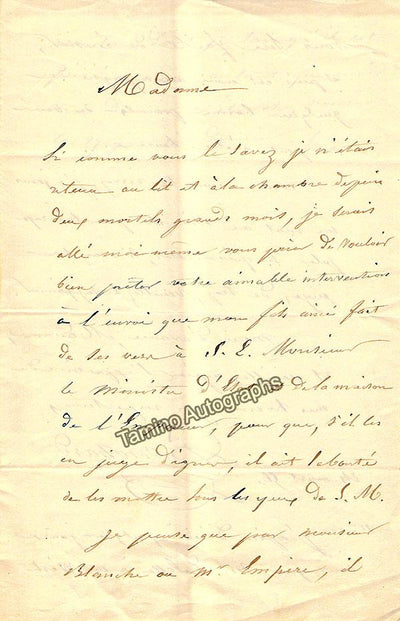 Madame
Si comme vous le savez je n'étais
retenu au lit et à la chambre depuis
deux mortels grands mois, je serais
allé moi même vous prier de vouloir
bien prêter votre aimable intervention
à l'envoi que mon fils ainé fait
de ses vers à S. E. Monsieur
le Ministre d'Etat de la maison
de l'Empereur, pour que, s'il les
en juge dignes, il ait la bonté
de les mettre sous les yeux de S. M.
Je pense que par monsieur
Blanche ou Mr Empire, il
Tamino Autographs